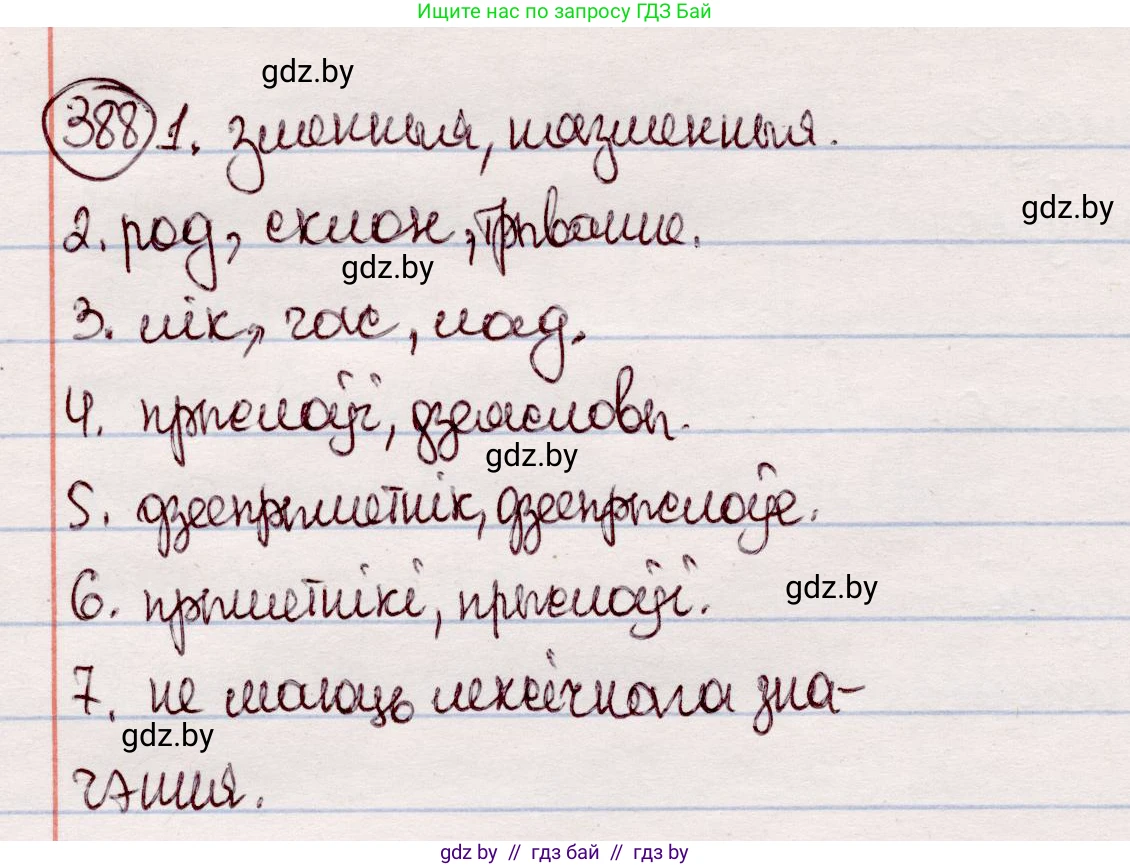 Ищите нас по запросу ГДЗ Бай
gdz.by
388 1. зменныя, нязменныя.
gdz.by
2. род, склон, трыванне.
gdz.by
3. лік, час, лад.
4. прыслоўі, дзеясловы.
gdz.by
5. дзеепрыметнік, дзеепрыслоўе.
6. прыметнікі, прыслоўі.
gdz.by
7. не маюць лексічнага зна-
gdz.by
чэння.
gdz.by // гдз бай // гдз by